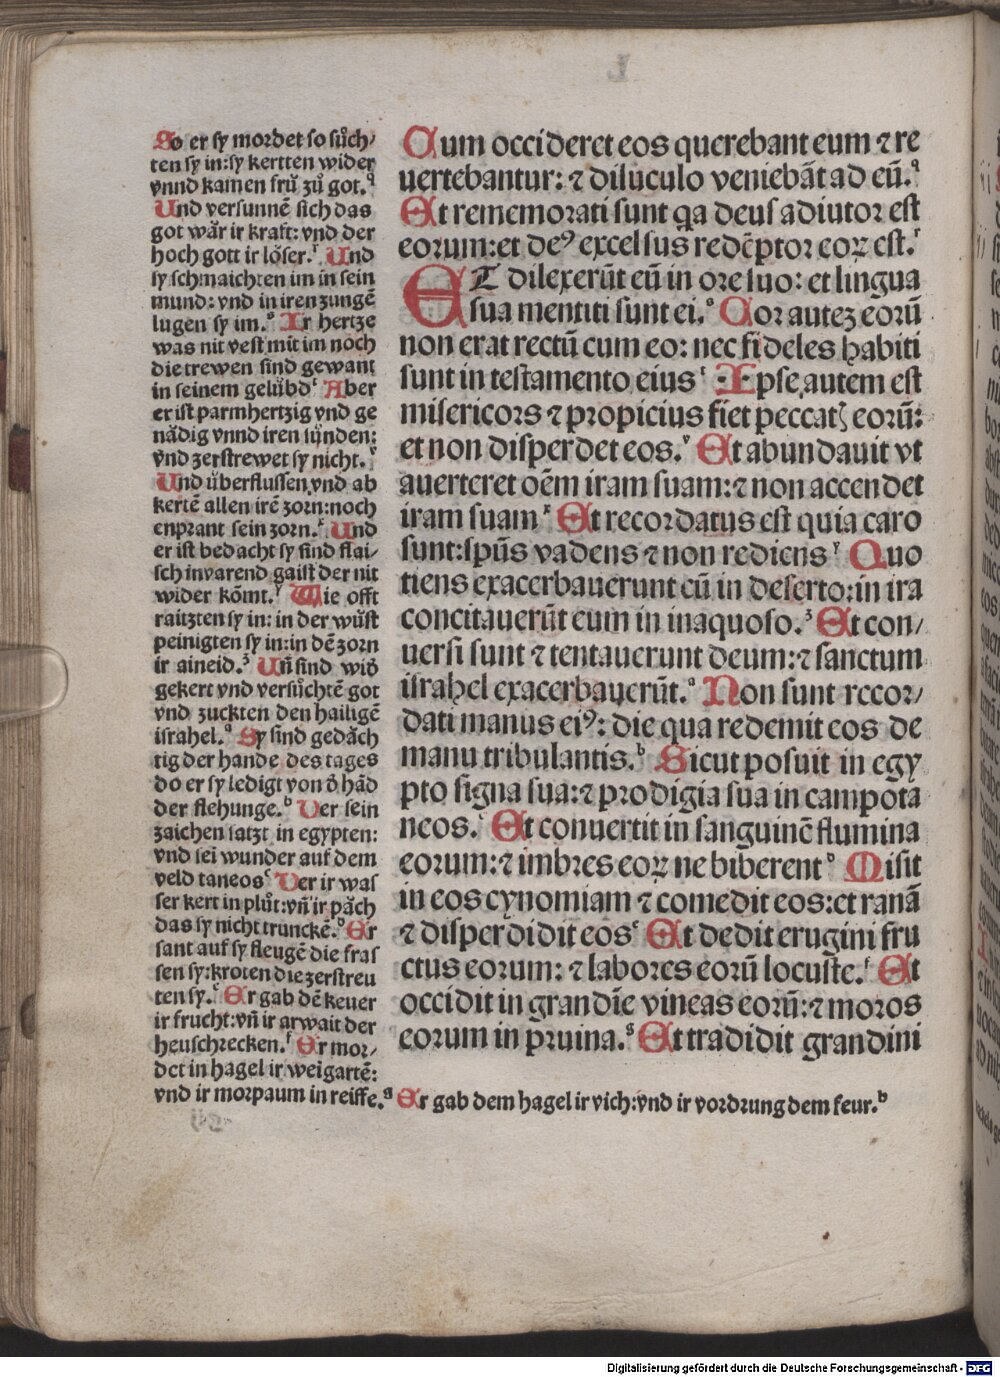 So er sy mordet so sůch/
ten sy in:sy kertten wider
vnnd kamen frů zů got.q
Und versunnē sich das
got wär ir kraft: vnd der
hoch gott ir löser.r Und
sy schmaichten im in sein
mund: vnd in iren zungē
lugen sy im.s Ir hertze
was nit vest mit im noch
die trewen sind gewant
in seinem gelübdt Aber
er ist parmhertzig vnd ge
nädig vnnd iren sünden:
vnd zerstrewet sy nicht.v
Und überflussen vnd ab
kertē allen irē zorn:noch
enprant sein zorn.x Und
er ist bedacht sy sind flai/
sch invarend gaist der nit
wider kōmt.y Wie offt
raitzten sy in: in der wůst
peinigten sy in:in dē zorn
ir aineid.z Uñ sind wid̄
gekert vnd versůchtē got
vnd zuckten den hailigē
israhel.a Sy sind gedäch
tig der hande des tages
do er sy ledigt von d̄ hād
der flehunge.b Der sein
zaichen satzt in egypten:
vnd sei wunder auf dem
veld taneosc Der ir was
ser kert in plůt:vñ ir päch
das sy nicht trunckē.d Er
sant auf sy fleugē die fras
sen sy:kroten die zerstreu
ten sy.e Er gab dē keuer
ir frucht:vñ ir arwait der
heuschrecken.f Er mor/
det in hagel ir weigartē:
vnd ir morpaum in reiffe.g Er gab dem hagel ir vich:vnd ir vordrung dem feur.h
Cum occideret eos querebant eum ⁊ re
uertebantur: ⁊ diluculo veniebāt ad eū.q
Et rememorati sunt qa deus adiutor est
eorum:et deꝰ excelsus redēptor eoꝝ est.r
ET dilexerūt eū in ore suo: et lingua
sua mentiti sunt ei.s Cor autez eorū
non erat rectū cum eo: nec fideles habiti
sunt in testamento eiust Ipse autem est
misericors ⁊ propicius fiet peccatꝭ eorū:
et non disperdet eos.v Et abundauit vt
auerteret oēm iram suam:⁊ non accendet
iram suamx Et recordatus est quia caro
sunt:spūs vadens ⁊ non rediensy Quo
tiens exacerbauerunt eū in deserto:in ira
concitauerūt eum in inaquoso.z Et con/
uersi sunt ⁊ tentauerunt deum:⁊ sanctum
israhel exacerbauerūt.a Non sunt recor/
dati manus eiꝰ: die qua redemit eos de
manu tribulantis.b Sicut posuit in egy
pto signa sua:⁊ prodigia sua in campo ta
neos.c Et conuertit in sanguinē flumina
eorum:⁊ imbres eoꝝ ne biberentd Misit
in eos cynomiam ⁊ comedit eos:et ranā
⁊ disperdidit eose Et dedit erugini fru
ctus eorum: ⁊ labores eorū locuste.f Et
occidit in grandīe vineas eorū:⁊ moros
eorum in pruina.g Et tradidit grandini
Digitalisierung gefördert durch die Deutsche Forschungsgemeinschaft - DFG